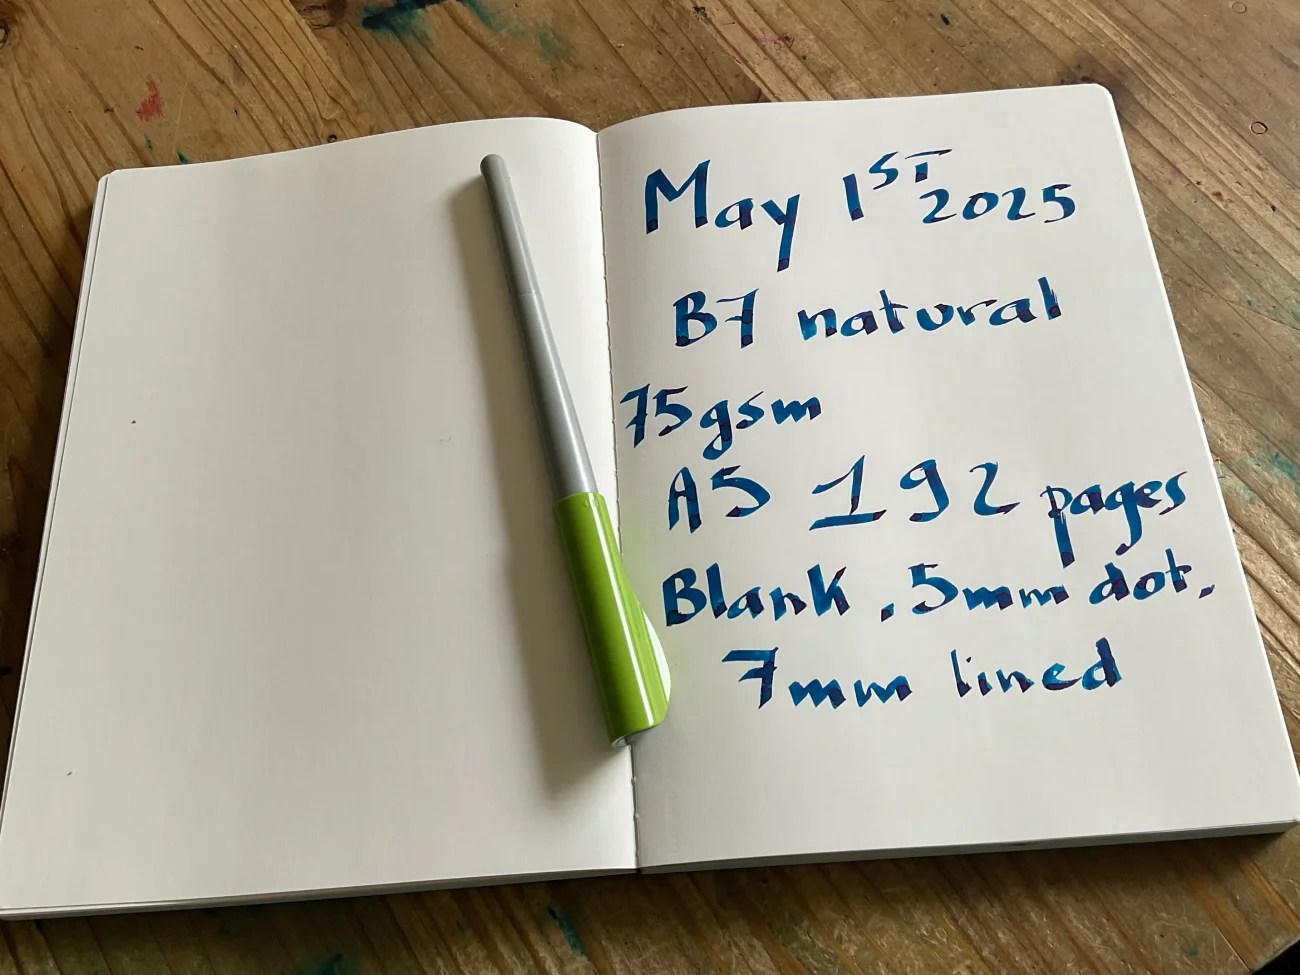 May 1ST 2025
B7 natural
75gsm
A5 192 pages
Blank, 5mm dot,
7mm lined